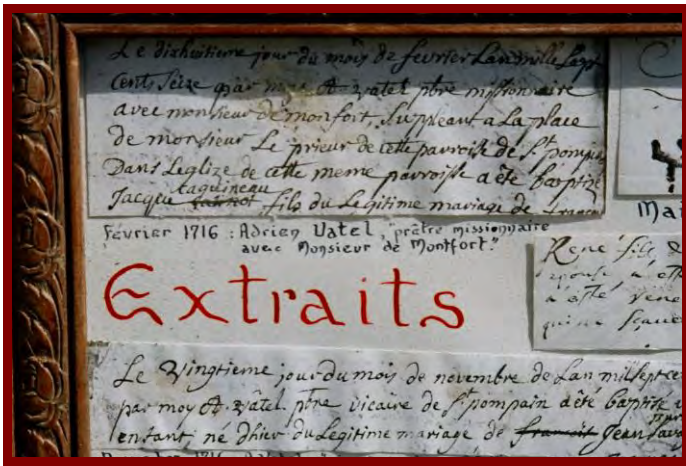 Le dixhuitieme jour du mois de fevrier Lan mille Sept
Cents Seize par moy A. vatel ptre missionnaire
avec monsieur de monfort Suppleant a La place
de monsieur Le prieur de cette parroisse de St pompain
Dans Leglize de cette meme parroisse a été baptisé
taquineau
Jacque fils du Legitime mariage de
Février 1716 : Adrien Vatel, "prêtre missionnaire
avec Monsieur de Montfort."
Mai
René fils d
Extraits
Le Vingtieme jour du mois de novembre de Lan mil sept ce
par moy A. vâtel ptre vicaire de St pompain a été baptisé
enfant né dhier du Legitime mariage de francois Jean